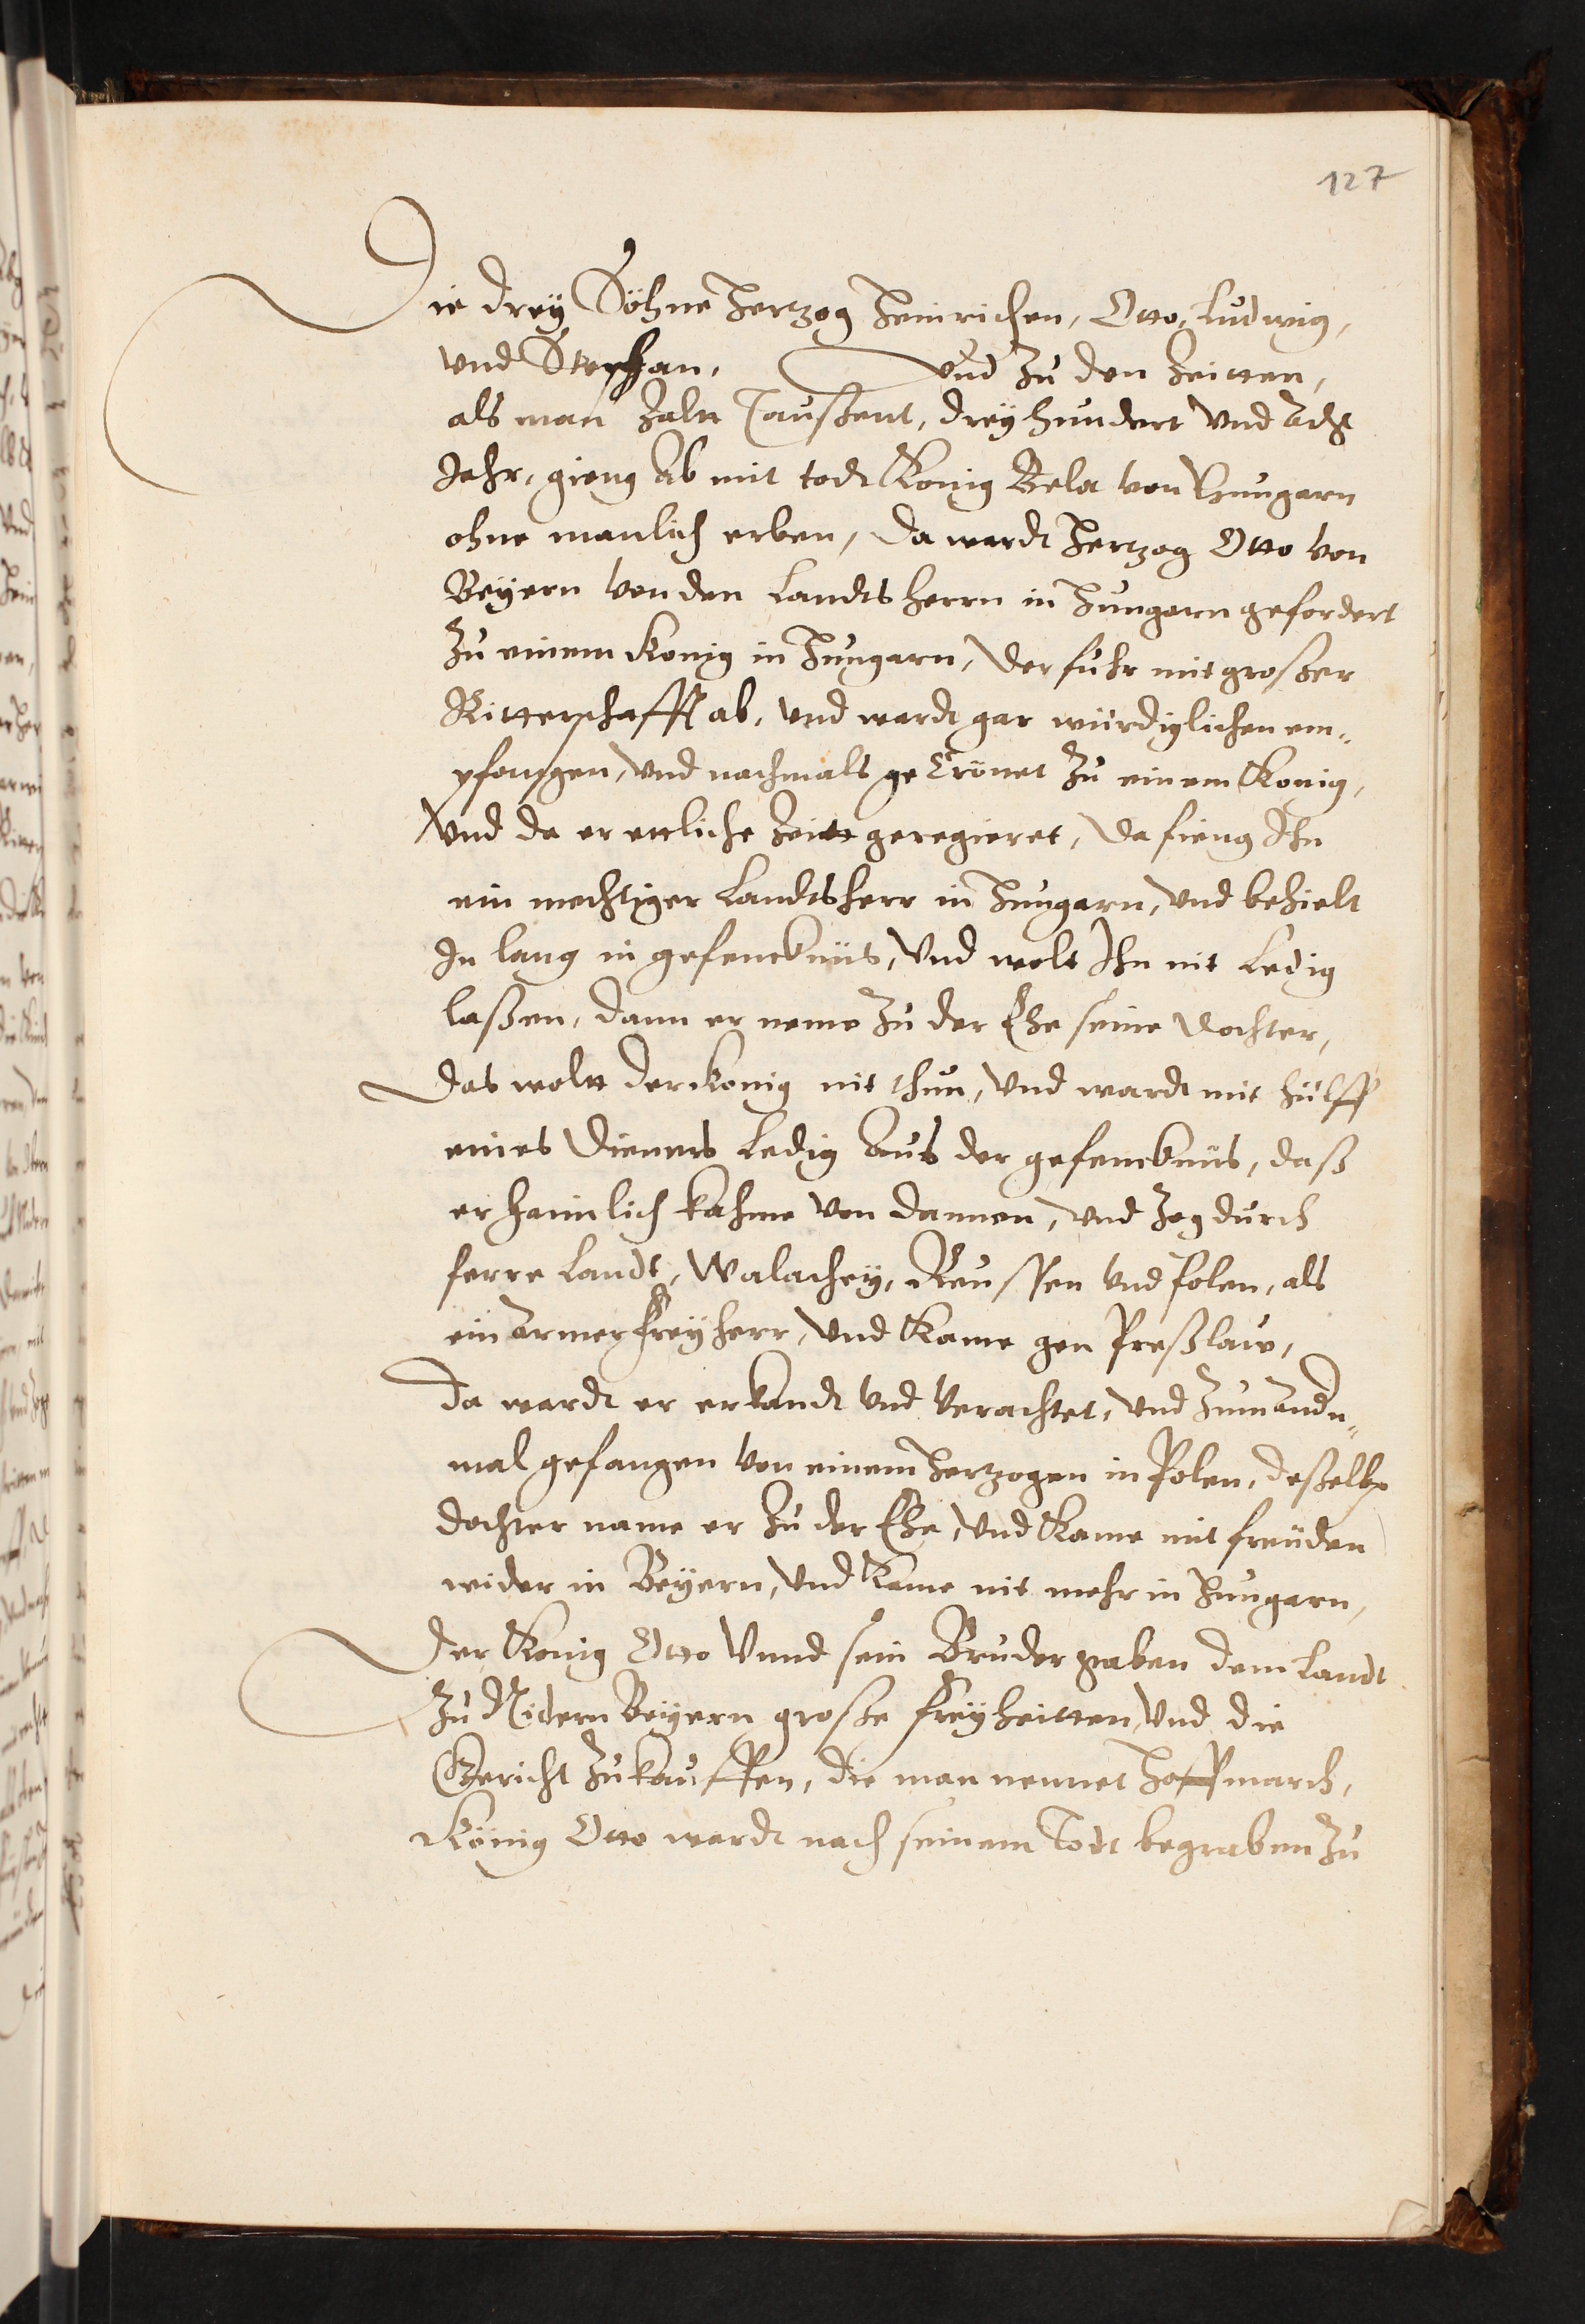 127
Die drey Söhne Hertzog Heinrichen, Otto, Ludwig,
vnd Stephan, Vnd zu den Zeitten,
als man zalte Taußent, dreyhundert vnd Acht
Jahr, gieng Ab mit todt König Bela von Hungarn
ohne manlich erben, da wardt Hertzog Otto von
Beyern von den Landtsherrn in Hungarn gefordert
zu einem König in Hungarn, der fuhr mit großer
Ritterschafft ab, vnd wardt gar würdiglichen em„
pfangen, vnd nachmals geCrönet zu einem König,
Vnd da er ettliche Zeitt geregieret, da fieng Ihn
ein mechtiger Landtsherr in Hungarn, vnd behielt
In lang in gefencknüs, Vnd wolt Ihn nit Ledig
laßen, dann er neme zu der Ehe seine dochter,
das wolte der König nit thun, vnd wardt mit hülff
eines dieners Ledig Aus der gefencknüs, daß
er haimlich kahme von dannen, vnd zog durch
ferre Landt, Walachey, Reussen vnd Polen, als
ein Armer freyherr, Vnd Kame gen Preßlaw,
da wardt er erkandt vnd verachtet, vnd zum Andn„
mal gefangen von einem Hertzogen in Polen, deßelben
dochter name er zu der Ehe, vnd Kame mit freuden
wider in Beyern, vnd Kame nit mehr in Hungarn,
Der König Otto Vnnd sein Bruder gaben dem Landt
zu Nidern Beyern große freyheitten, Vnd die
Gericht zukauffen, die man nennet Hoffmarch,
König Otto wardt nach seinem Todt begraben zu